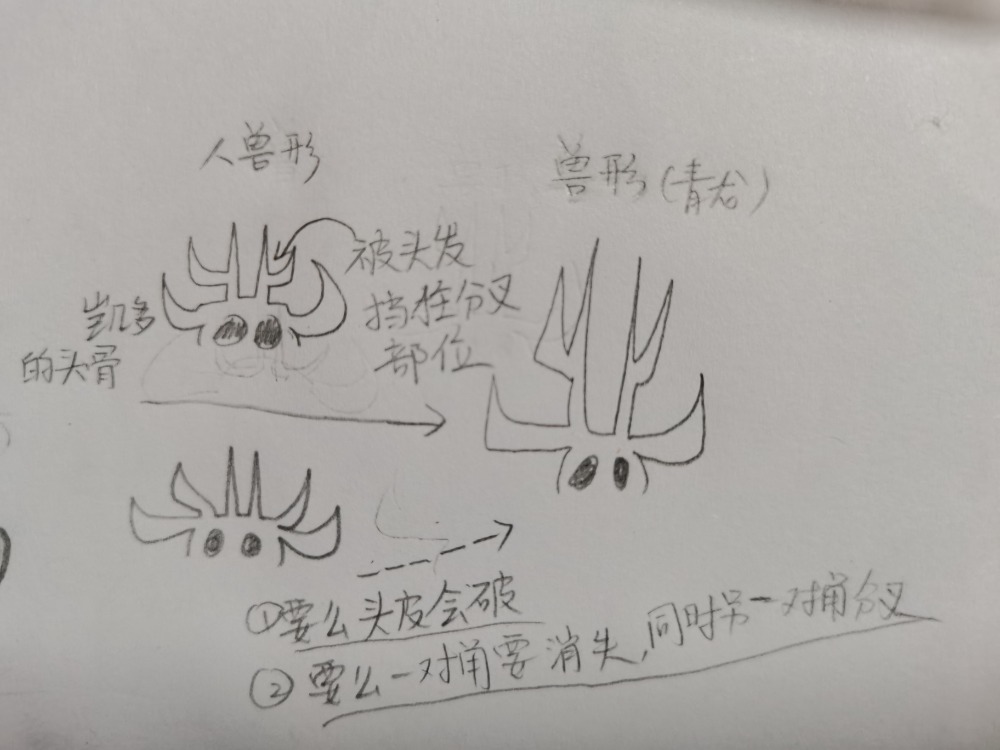 人兽形
兽形(青龙)
被头发
挡住分叉
部位
凯多
的头骨
①要么头皮会破
②要么一对角要消失,同时另一对角分叉